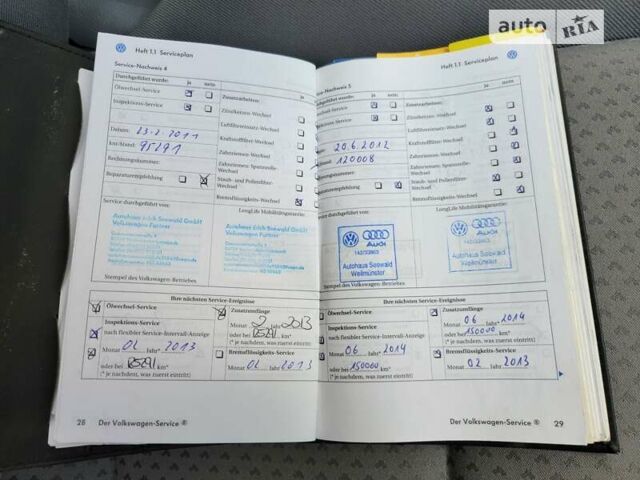 auto RIA
Heft 1.1 Serviceplan
Service-Nachweis 4
Durchgeführt wurde: ja nein
Ölwechsel-Service
Inspektions-Service
Datum: 23.2.2011
km-Stand: 95291
Rechnungsnummer:
Reparaturempfehlung
Zusatzarbeiten: ja
Zündkerzen-Wechsel
Luftfiltereinsatz-Wechsel
Kraftstofffilter-Wechsel
Zahnriemen-Wechsel
Zahnriemen-Spannrolle-
Wechsel
Staub- und Pollenfilter-
Wechsel
Bremsflüssigkeits-Wechsel
Service durchgeführt von:
LongLife Mobilitätsgarantie:
Autohaus Erich Seewald GmbH
Volkswagen Partner
Autohaus Erich Seewald GmbH
Volkswagen Partner
Stempel des Volkswagen-Betriebes
Ihre nächsten Service-Ereignisse
Ölwechsel-Service
Inspektions-Service
nach flexibler Service-Intervall-Anzeige
Monat 02 Jahr* 2013
oder bei km*
(* je nachdem, was zuerst eintritt)
Zusatzumfänge
Monat 2 Jahr* 2013
oder bei km*
(* je nachdem, was zuerst eintritt)
Bremsflüssigkeits-Service
Monat 02 Jahr 2013
28 Der Volkswagen-Service ®
Heft 1.1 Serviceplan
-Nachweis 5
geführt wurde: ja nein
-Service
Service
20.6.2012
120008
empfehlung
Zusatzarbeiten: ja nein
Zündkerzen-Wechsel
Luftfiltereinsatz-Wechsel
Kraftstofffilter-Wechsel
Zahnriemen-Wechsel
Zahnriemen-Spannrolle-
Wechsel
Staub- und Pollenfilter-
Wechsel
Bremsflüssigkeits-Wechsel
durchgeführt von:
LongLife Mobilitätsgarantie:
Audi
Autohaus Seewald
Weilmünster
Audi
Autohaus Seewald
Weilmünster
Stempel des Volkswagen-Betriebes
Ihre nächsten Service-Ereignisse
Ölwechsel-Service
Inspektions-Service
nach flexibler Service-Intervall-Anzeige
Monat 06 Jahr* 2014
oder bei 150000 km*
(* je nachdem, was zuerst eintritt)
Zusatzumfänge
Monat 06 Jahr* 2014
oder bei 150000 km*
(* je nachdem, was zuerst eintritt)
Bremsflüssigkeits-Service
Monat 02 Jahr 2013
Der Volkswagen-Service ® 29